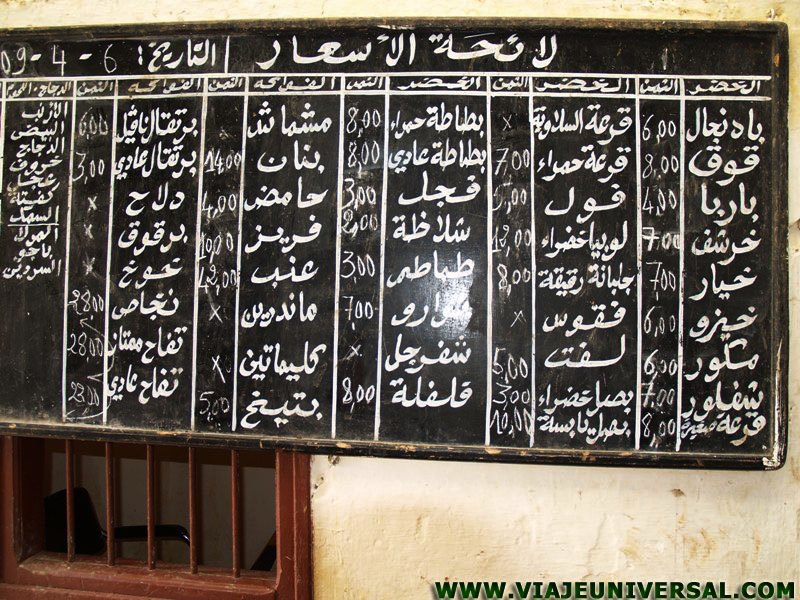 لائحة الأسعار التاريخ: 6-4-09
الخضر الثمن الخضر الثمن الخضر الثمن الفواكه الثمن الفواكه الثمن الدجاج، اللحوم
بادنجال 6,00 قرعة السلاوية x بطاطة حمراء 8,00 مشماش برتقال نافيل 6,00
قوق 8,00 قرعة حمراء 7,00 بطاطة عادي 8,00 بنان 14,00 برتقال عادي 3,00
باربا 4,00 فول 5,00 فجل 3,00 حامض 4,00 دلاح x
خرشف 7,00 لوبيا خضراء 12,00 شلاظة 2,00 فريز 10,00 برقوق x
خيار 7,00 جلبانة رقيقة 8,00 طماطم 3,00 عنب 42,00 خوخ x
خيزو 6,00 فقوس x 7,00 ماندرين x نجاص 28,00
مكور 6,00 لفت 5,00 شفرجل x كليماتين x تفاح ممتاز 28,00
شفلور 7,00 بصل خضراء 3,00 فلفلة 8,00 بتيخ 5,00 تفاح عادي 22,00
قرعة صغيرة 8,00 بصل يابسة 10,00
الأرنب
البيض
الدجاج
خروف
عجل
كفتة
السمك
المرلا
باجو
السردين
WWW.VIAJEUNIVERSAL.COM